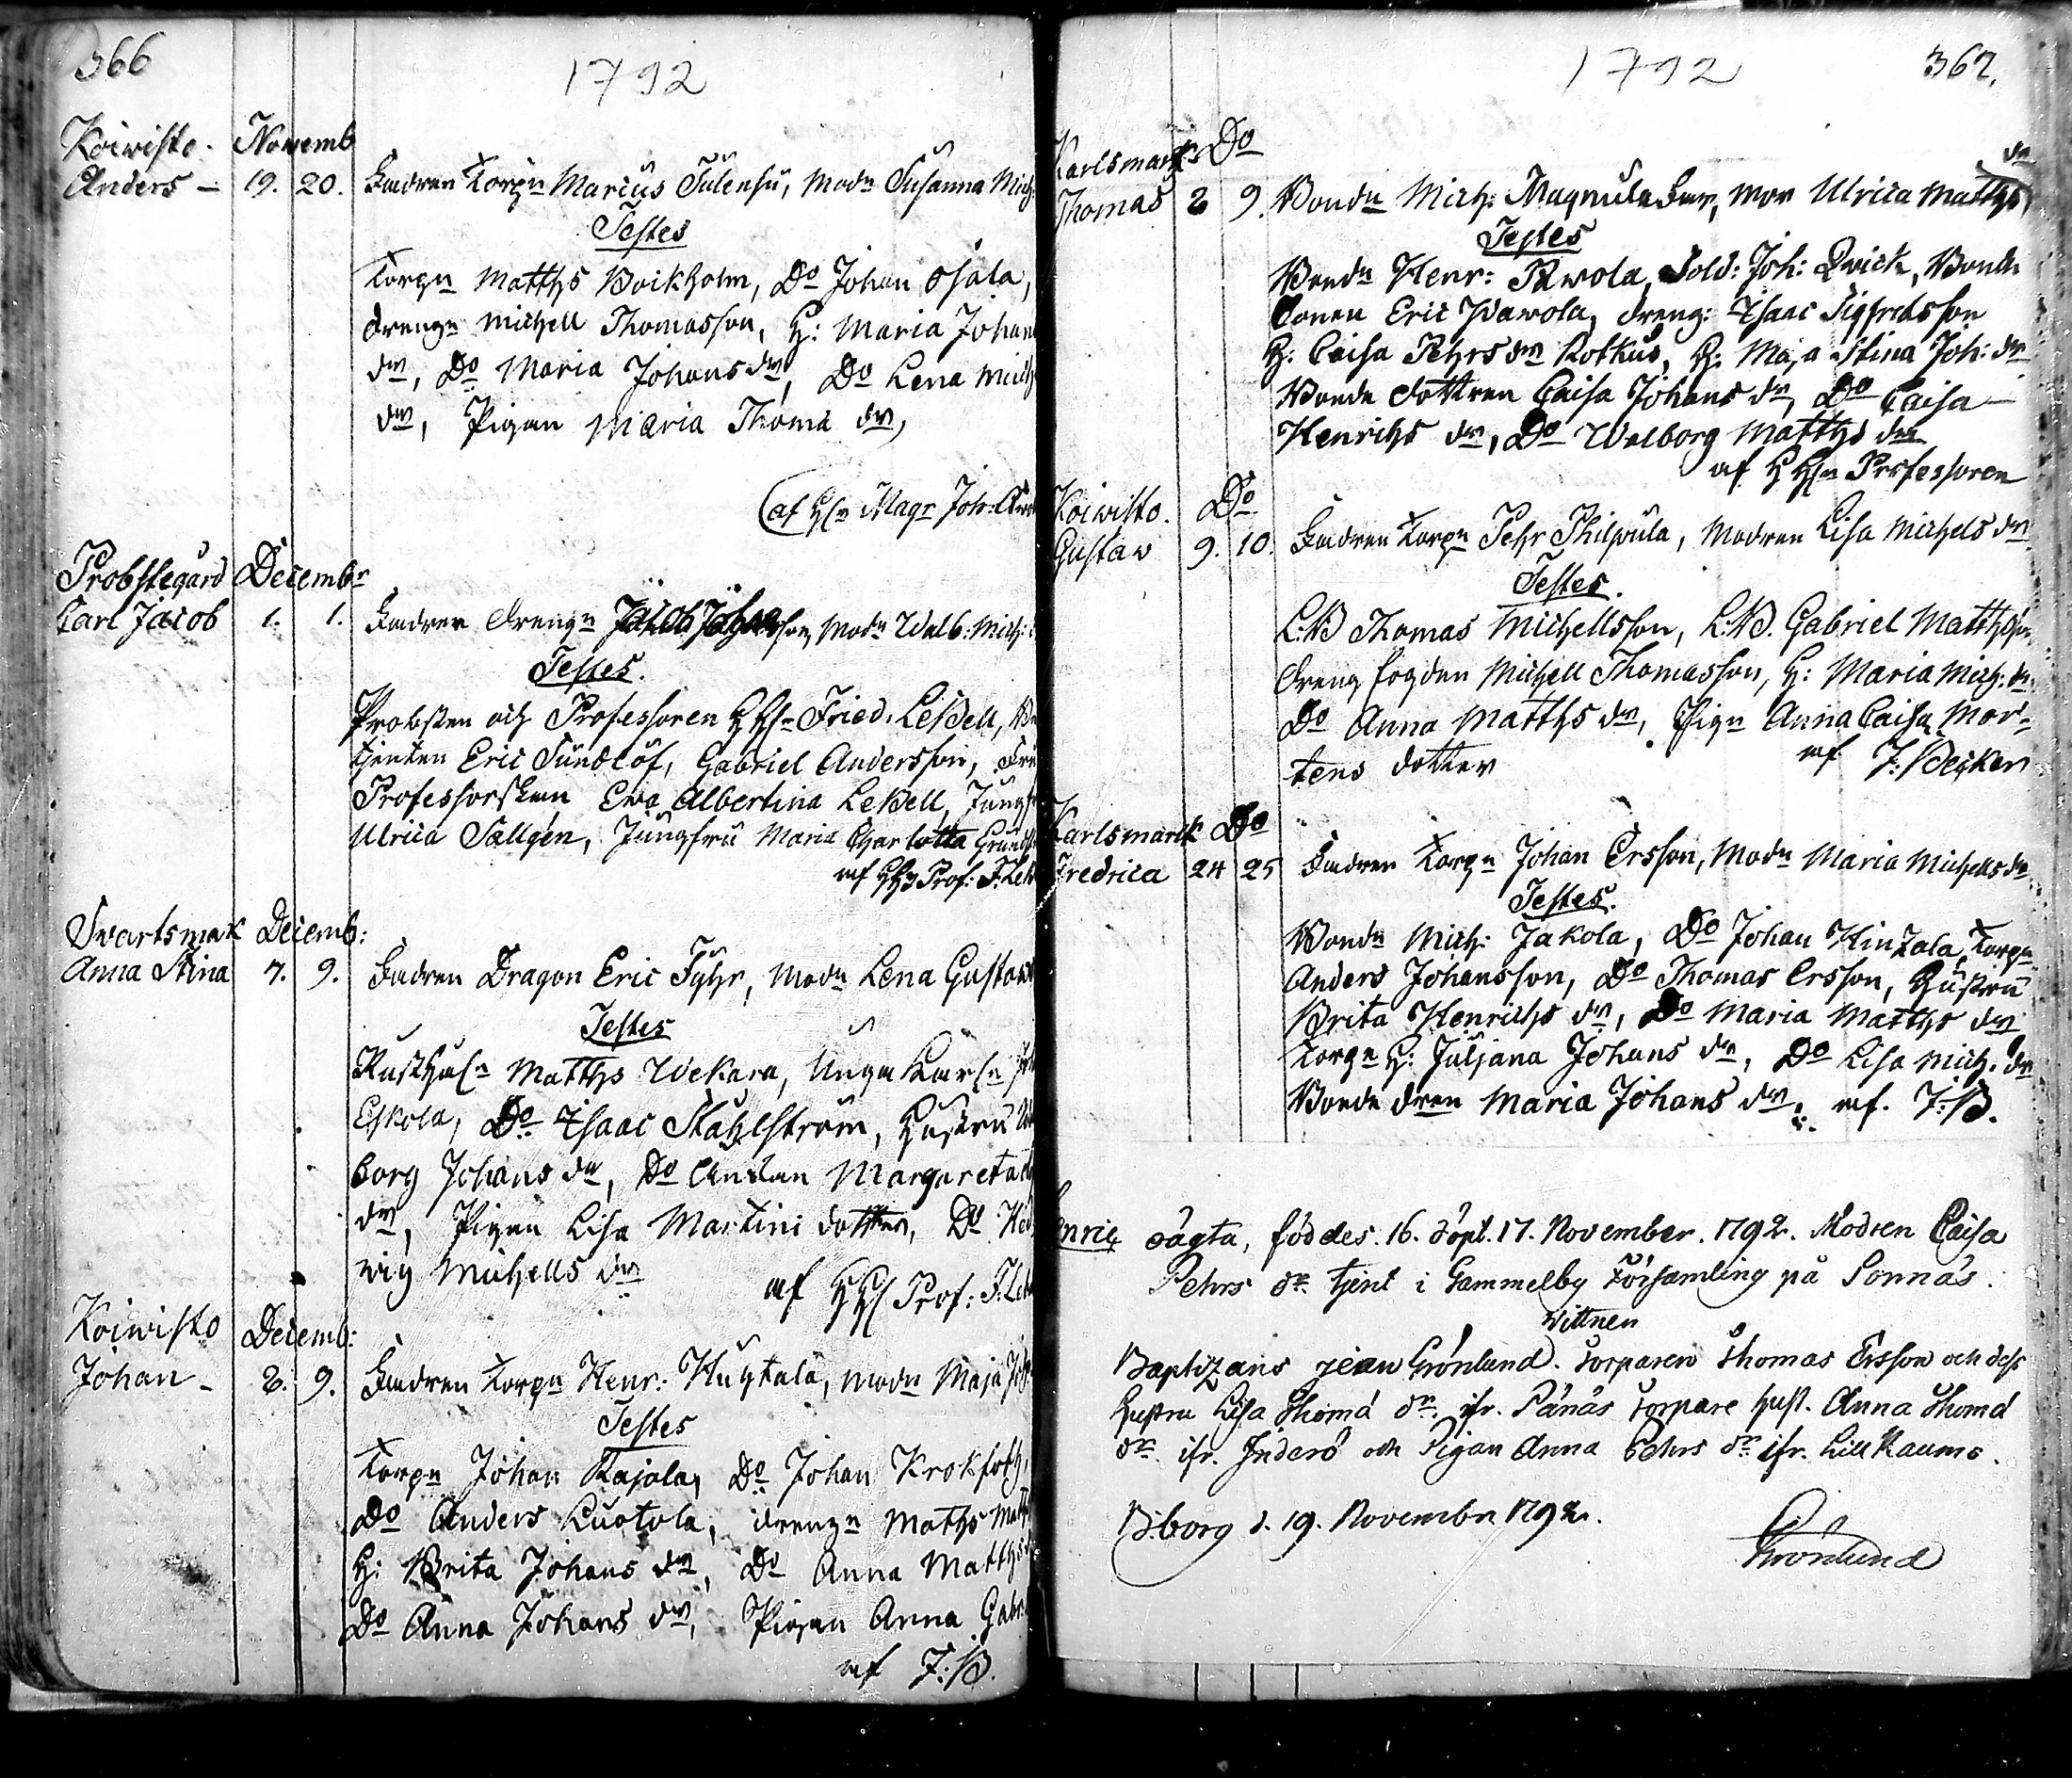 366
1792
Koiwisto. Novemb
Anders - 19. 20. Fadren Torpn Marcus Tulensu, Modn Susanna Mich:
Testes
Torpn Matths Boikholm, Do Johan Ojala,
drengn Michell Thomasson, H: Maria Johans
dr, Do Maria Johans dr, Do Lena Mich
dr, Pigan Maria Thoma dr,
(af Hr Magr Joh:
Probstegård Decembr
Carl Jacob 1. 1. Fadren drengn Jacob Johansson, Modn Walb: Mich:
Testes.
Probsten och Professoren HHr Fried. Leßell,
tjenten Eric Sundlöf, Gabriel Andersson, Fru
Professorskan Eva Albertina Leßell, Jungfr
Ulrica Sallgén, Jungfru Maria Charlotta
af HHr Prof: F. Leß
Svartsmark Decemb:
Anna Stina 7. 9. Fadren Dragon Eric Fyhr, Modn Lena Gustavs
Testes
Rusthåln Matths Wekara, Unga Karln
Eskola, Do Isaac Ståhlström, Hustru
borg Johans dr, Do Margareta
dr, Pigan Lisa Martini dotter, Do Hed
wig Michells dr af HHr Prof: F. Leß
Koiwisto Decemb:
Johan - 8. 9. Fadren Torpn Henr: Huhtala, Modn Maja
Testes
Torpn Johan Rajala, Do Johan Krokfoth,
Do Anders Luotola, drengn Maths Matt
H: Brita Johans dr, Do Anna Matths
Do Anna Johans dr, Pigan Anna Gabr
af J: B.
1792
367.
Karlsmark Do
Thomas 8 9. Bondn Mich: Magnula Far, Mor Ulrica Matths dr
Testes
Bondn Henr: Rewola, Sold: Joh: Qvick, Bonde
Sonen Eric Wawola, dreng: Isaac Sigfredsson
H: Caisa Pehrs dr Kotkus, H: Maja Stina Joh: dr
Bonde dottren Caisa Johans dr, Do Caisa
Henrichs dr, Do Walborg Matths dr
af HHrn Professoren
Koiwisto. Do
Gustaw 9. 10. Fadren Torpn Pehr Philpula, Modren Lisa Michels dr
Testes.
L:B Thomas Michellsson, L:B. Gabriel Matthsson,
dreng fogden Michell Thomasson, H: Maria Mich: dr.
Do Anna Matths dr, Pign Anna Caisa Mor-
tens dotter af J: Becker
Karlsmark Do
Fredrica 24 25 Fadren Torpn Johan Ersson, Modn Maria Michells dr
Testes.
Bondn Mich: Jakola, Do Johan Hinzala, Torpn
Anders Johansson, Do Thomas Ersson, Hustru
Brita Henrichs dr, Do Maria Matths dr
Torpn H: Juljana Johans dr, Do Lisa Mich. dr
Bonde dren Maria Johans dr: af. J: B.
oägta, föddes. 16. döpt. 17. November. 1792. Modren Caisa
Pehrs dr. tjent i Gammelby Församling på Sonnäs.
Wittnen
Baptizans Jean Grönlund. Torparen Thomas Ersson och dess
hustru Lisa Thomä dr. ifr. Sånäs Torpare hust. Anna Thomä
dr. ifr. Inderö och Pigan Anna Pehrs dr ifr. Lill Raumo.
Biborg d. 19. Novembr 1792.
Grönlund